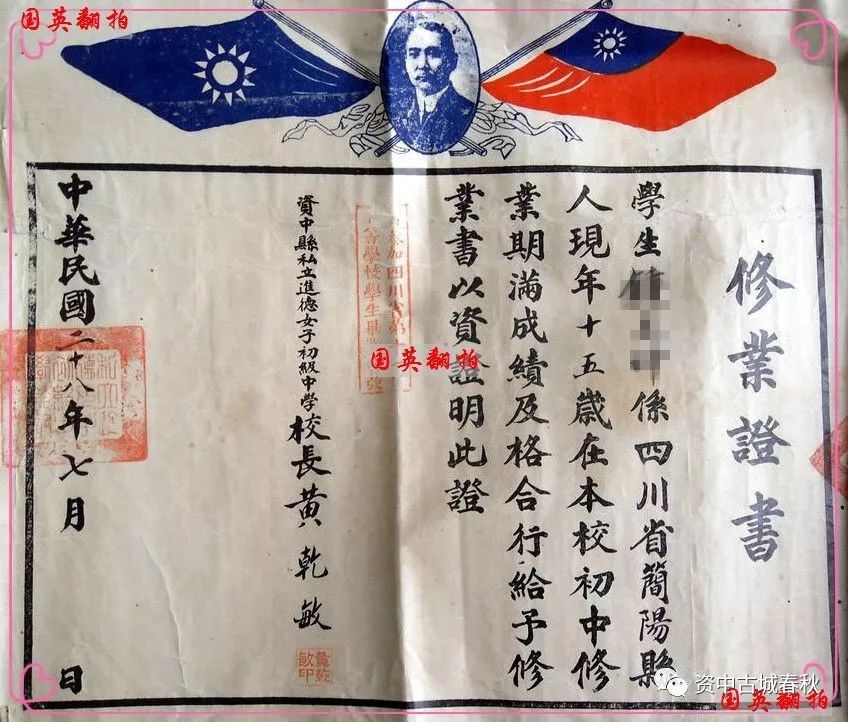 国英翻拍
修業證書
學生 係四川省簡陽縣
人現年十五歲在本校初中修
業期滿成績及格合行給予修
業書以資證明此證
加四川省第
學校學生畢
国英翻拍
資中縣私立進德女子初級中學校長黃乾敏
黃乾敏印
中華民國二十八年七月 日
资中古城春秋
国英翻拍